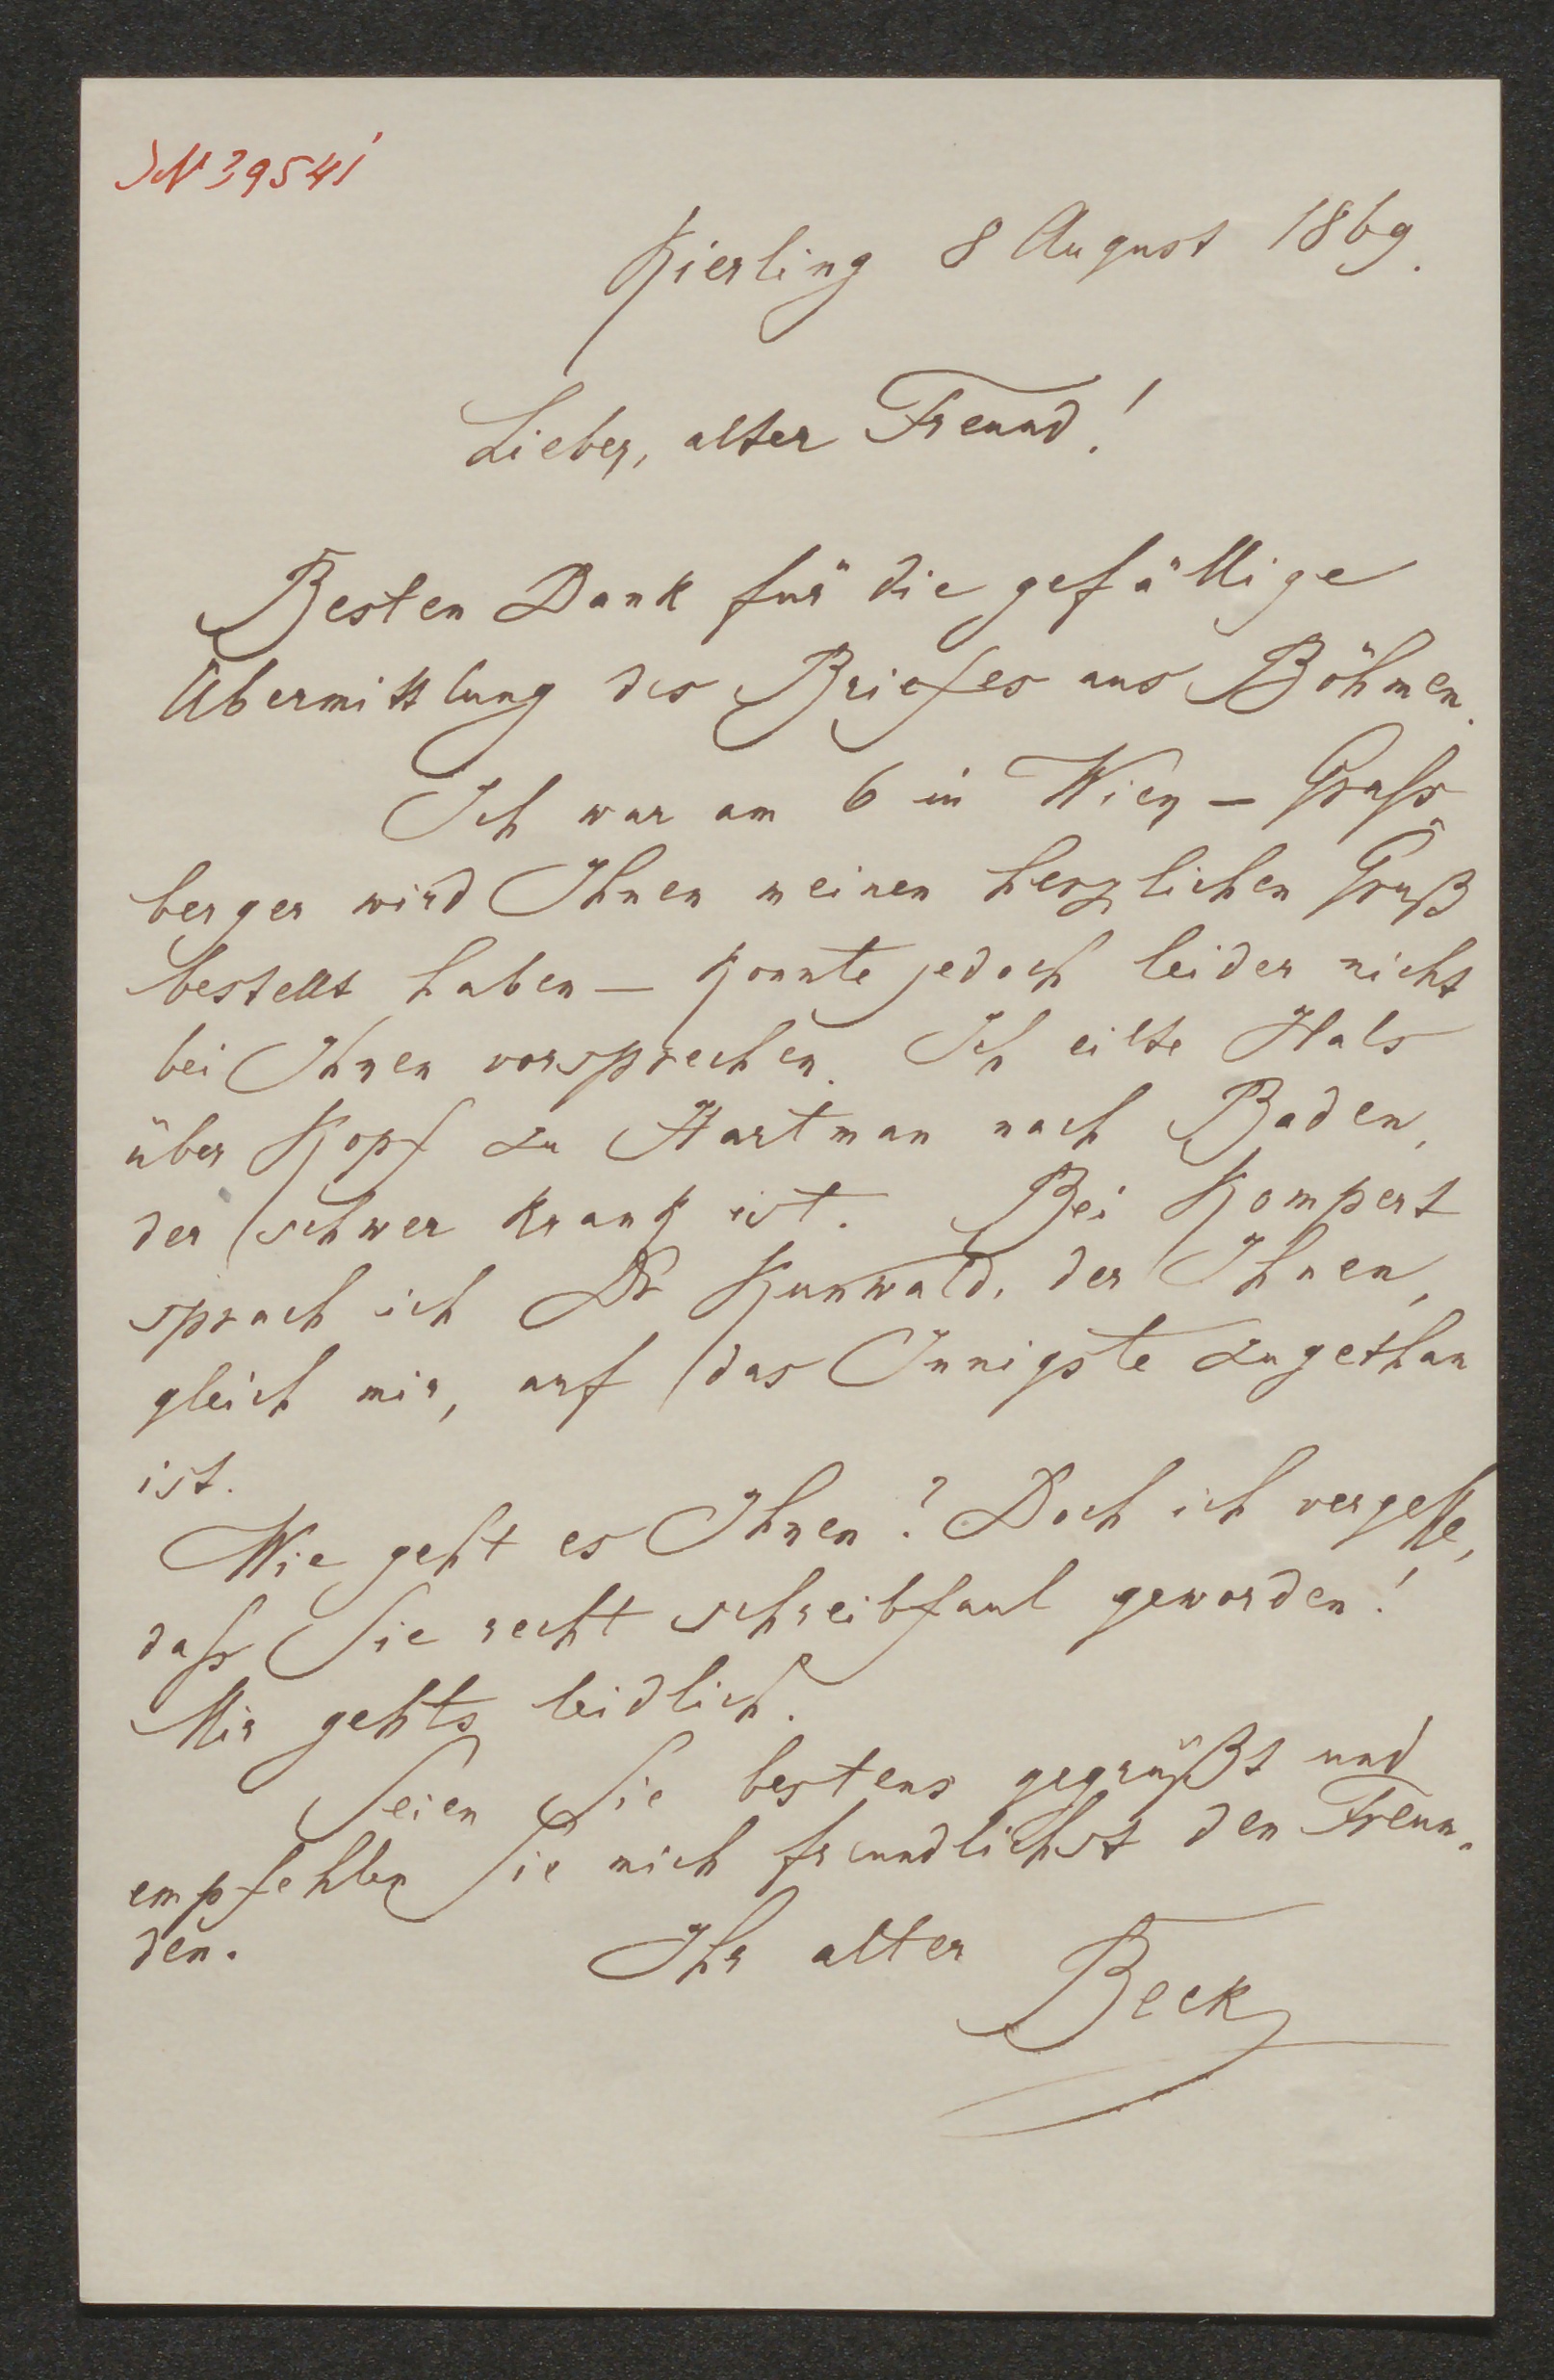 JN 39541
Kierling 8 August 1869.
Lieber, alter Freund!
Besten Dank für die gefällige
Übermittlung des Briefes aus Böhmen.
Ich war am 6 in Wien – Grass-
berger wird Ihnen meinen herzlichen Gruß
bestellt haben – konnte jedoch leider nicht
bei Ihnen vorsprechen. Ich eilte Hals
über Kopf zu Hartman nach Baden,
der schwer krank ist. Bei Kompert
sprach ich Dr Kunwald, der Ihnen,
gleich mir, auf das Innigste zugethan
ist.
Wie geht es Ihnen? Doch ich vergesse,
dass Sie recht schreibfaul geworden!
Mir gehts leidlich.
Seien Sie bestens gegrüßt und
empfehlen Sie mich freundlichst den Freun-
den.
Ihr alter
Beck